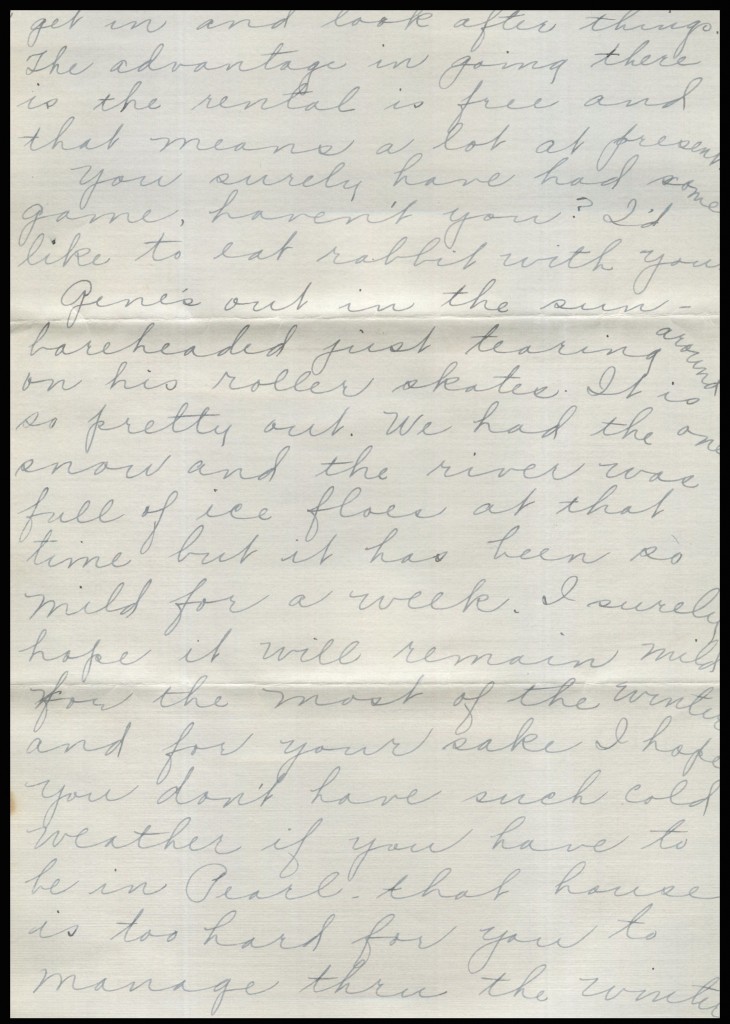 get in and look after things.
The advantage in going there
is the rental is free and
that means a lot at present
You surely have had some
game, haven't you? I'd
like to eat rabbit with you
Gene's out in the sun -
bareheaded just tearing around
on his roller skates. It is
so pretty out. We had the one
snow and the river was
full of ice floes at that
time but it has been so
mild for a week. I surely
hope it will remain mild
for the most of the winter
and for your sake I hope
you don't have such cold
weather if you have to
be in Pearl - that house
is too hard for you to
manage thru the winter